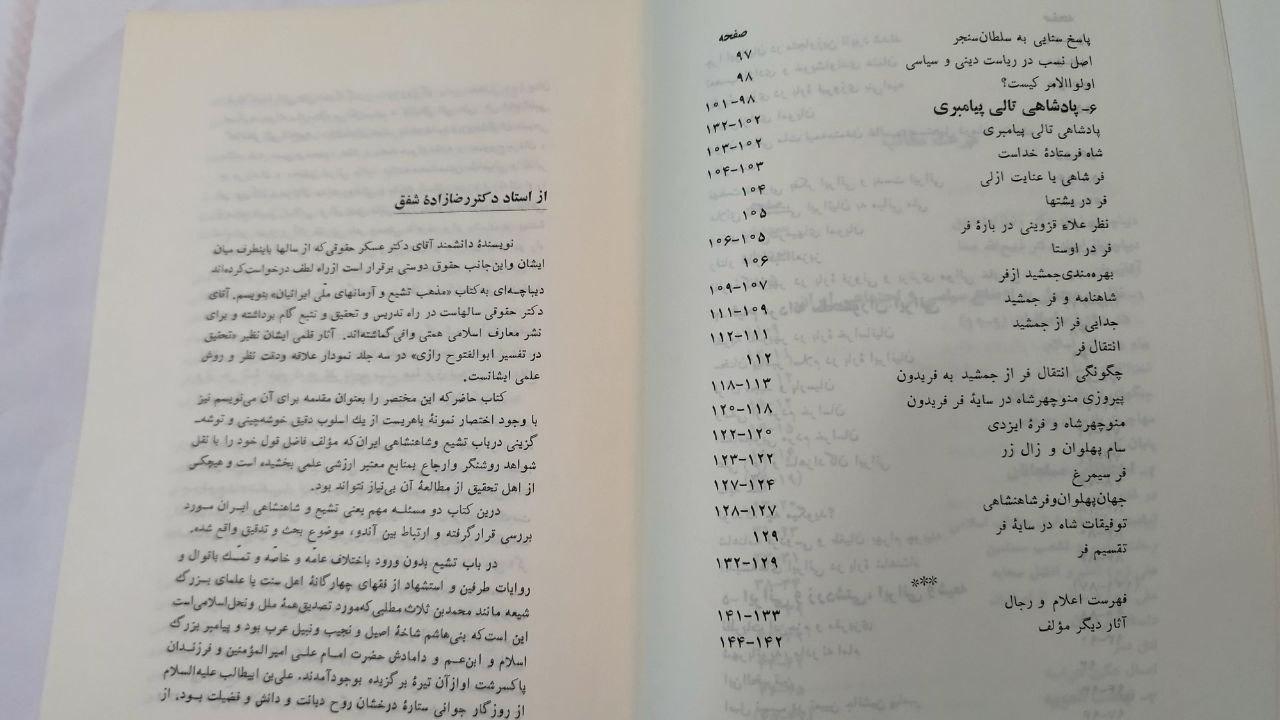 صفحه
پاسخ سنایی به سلطان‌سنجر ۹۷
اصل نسب در ریاست دینی و سیاسی ۹۸
اولواالامر کیست؟ ۹۸-۱۰۱
۶ـ پادشاهی تالی پیامبری ۱۰۲-۱۳۲
پادشاهی تالی پیامبری ۱۰۲-۱۰۳
شاه فرستادهٔ خداست ۱۰۳-۱۰۴
فر شاهی یا عنایت ازلی ۱۰۴
فر در یشتها ۱۰۵
نظر علاء قزوینی در بارهٔ فر ۱۰۵-۱۰۶
فر در اوستا ۱۰۶
بهره‌مندی‌جمشید ازفر ۱۰۷-۱۰۹
شاهنامه و فر جمشید ۱۰۹-۱۱۱
جدایی فر از جمشید ۱۱۱-۱۱۲
انتقال فر ۱۱۲
چگونگی انتقال فر از جمشید به فریدون ۱۱۳-۱۱۸
پیروزی منوچهرشاه در سایهٔ فر فریدون ۱۱۸-۱۲۰
منوچهرشاه و فرهٔ ایزدی ۱۲۰-۱۲۲
سام پهلوان و زال زر ۱۲۲-۱۲۳
فر سیمرغ ۱۲۴-۱۲۷
جهان‌پهلوان‌وفرشاهنشاهی ۱۲۷-۱۲۸
توفیقات شاه در سایهٔ فر ۱۲۹
تقسیم فر ۱۲۹-۱۳۲
***
فهرست اعلام و رجال ۱۳۳-۱۴۱
آثار دیگر مؤلف ۱۴۲-۱۴۴
از استاد دکتررضازادهٔ شفق
نویسندهٔ دانشمند آقای دکتر عسکر حقوقی‌که از سالها باینطرف میان
ایشان واین‌جانب حقوق دوستی برقرار است ازراه لطف درخواست‌کرده‌اند
دیباچه‌ای به‌کتاب «مذهب تشیع و آرمانهای ملّی ایرانیان» بنویسم. آقای
دکتر حقوقی سالهاست در راه تدریس و تحقیق و تتبع گام برداشته و برای
نشر معارف اسلامی همتی وافی‌گماشته‌اند. آثار قلمی ایشان نظیر «تحقیق
در تفسیر ابوالفتوح رازی» در سه جلد نمودار علاقه ودقت نظر و روش
علمی ایشانست.
کتاب حاضرکه این مختصر را بعنوان مقدمه برای آن می‌نویسم نیز
با وجود اختصار نمونهٔ باهریست از یك اسلوب دقیق خوشه‌چینی و توشه‌ـ
گزینی درباب تشیع وشاهنشاهی ایران‌که مؤلف فاضل قول خود را با نقل
شواهد روشنگر وارجاع بمنابع معتبر ارزشی علمی بخشیده است و هیچکس
از اهل تحقیق از مطالعهٔ آن بی‌نیاز نتواند بود.
درین کتاب دو مسئلـه مهم یعنی تشیع و شاهنشاهی ایـران مـورد
بررسی قرارگرفته و ارتباط بین آندو، موضوع بحث و تدقیق واقع شده.
در باب تشیع بدون ورود باختلاف عامّه و خاصّه و تمسّـك باقوال و
روایات طرفین و استشهاد از فقهای چهارگانهٔ اهل سنت یا علمای بـزرگ
شیعه مانند محمدبن ثلاث مطلبی‌که‌مورد تصدیق‌همهٔ ملل ونحل‌اسلامی‌است
این است‌که بنی‌هاشم شاخهٔ اصیل و نجیب ونبیل عرب بود و پیامبر بزرگ
اسلام و ابن‌عـم و دامادش حضرت امـام علـی امیرالمؤمنین و فرزنـدان
پاکسرشت اوازآن تیرهٔ برگزیده بوجودآمدند. علی‌بن ابیطالب علیه‌السلام
از روزگار جوانی ستارهٔ درخشان روح دیانت و دانش و فضیلت بـود. از